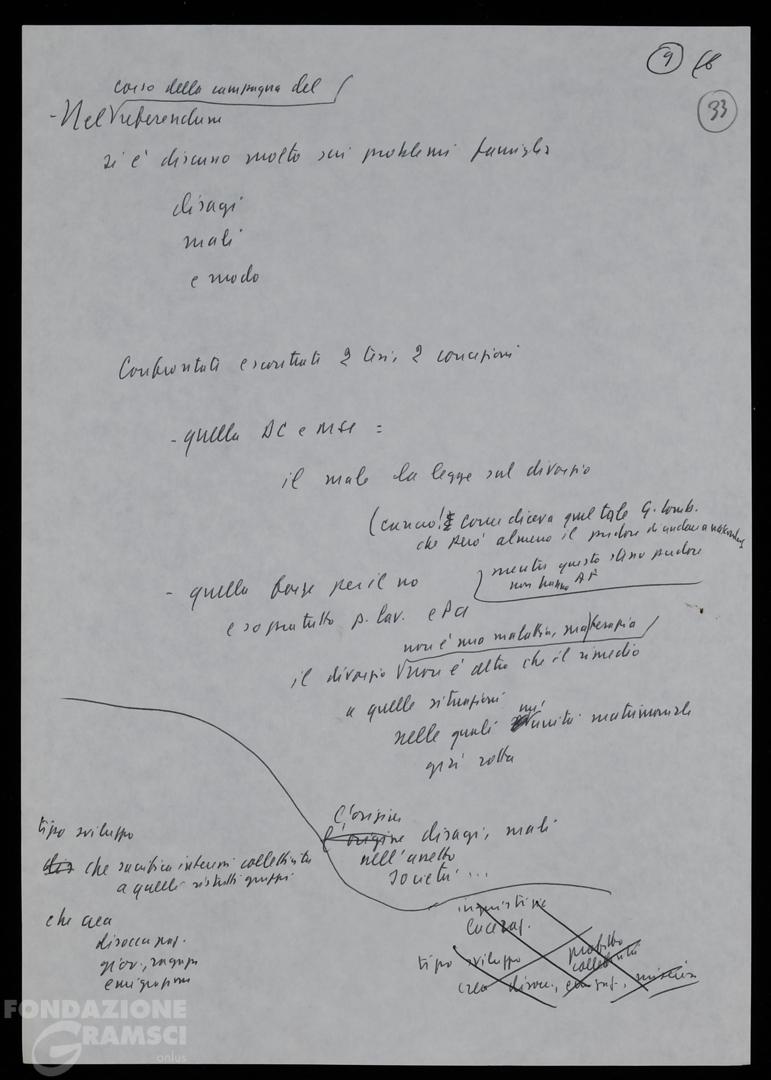 9 68
33
corso della campagna del
- Nel referendum
si è discusso molto sui problemi famiglia
disagi
mali
e modo
Confrontati e scontrati 2 tesi, 2 concezioni
- quella DC e MSI =
il male la legge sul divorzio
(cancro! come diceva quel tale G. Lomb.
che però almeno il pudore di andare a nascondersi
mentre questo stesso pudore
non hanno AF
- quella forze per il no
e soprattutto p. lav. e PCI
non è una malattia, ma terapia
il divorzio non è altro che il rimedio
a quelle situazioni
nelle quali unità matrimoniale
già rotta
L'origine
L'origine disagi, mali
nell'assetto
società ...
tipo sviluppo
dis che sacrifica interessi collettività
a quelli ristretti gruppi
che crea
disoccupaz.
giov., ragazze
emigrazione
ingiustizie
laceraz.
tipo sviluppo profitto
collettività
crea disocc., emigraz., miseria
FONDAZIONE
GRAMSCI
onlus